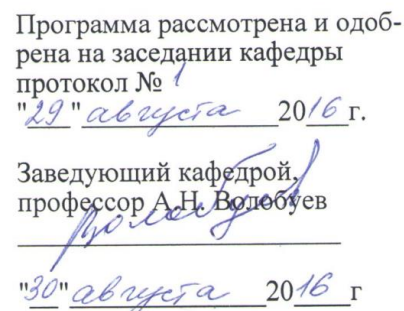 Программа рассмотрена и одоб-
рена на заседании кафедры
протокол № 1
"29" августа 2016 г.
Заведующий кафедрой,
профессор А.Н. Волобуев
Волобуев
"30" августа 2016 г